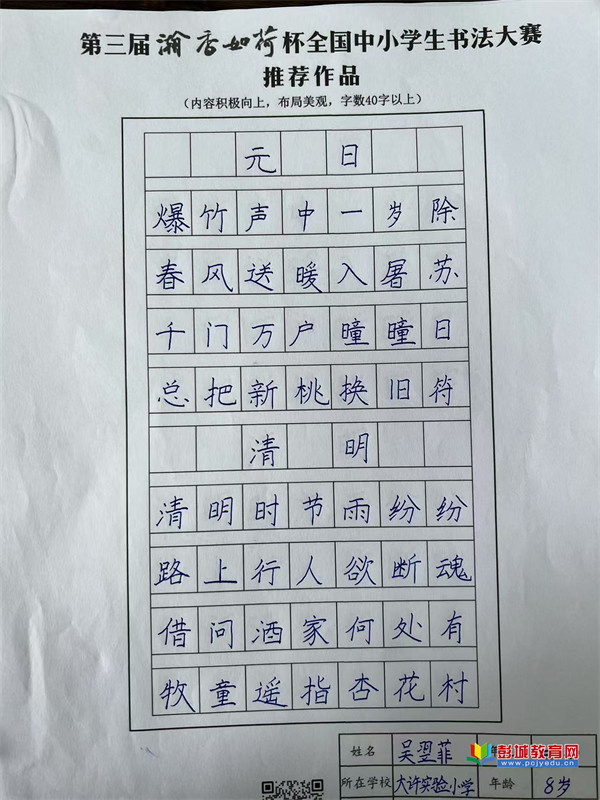 第三届瀚香如荷杯全国中小学生书法大赛
推荐作品
（内容积极向上，布局美观，字数40字以上）
元日
爆竹声中一岁除
春风送暖入屠苏
千门万户曈曈日
总把新桃换旧符
清明
清明时节雨纷纷
路上行人欲断魂
借问酒家何处有
牧童遥指杏花村
姓名 吴翌菲
所在学校 大许实验小学 年龄 8岁
彭城教育网
www.pcjyedu.cn